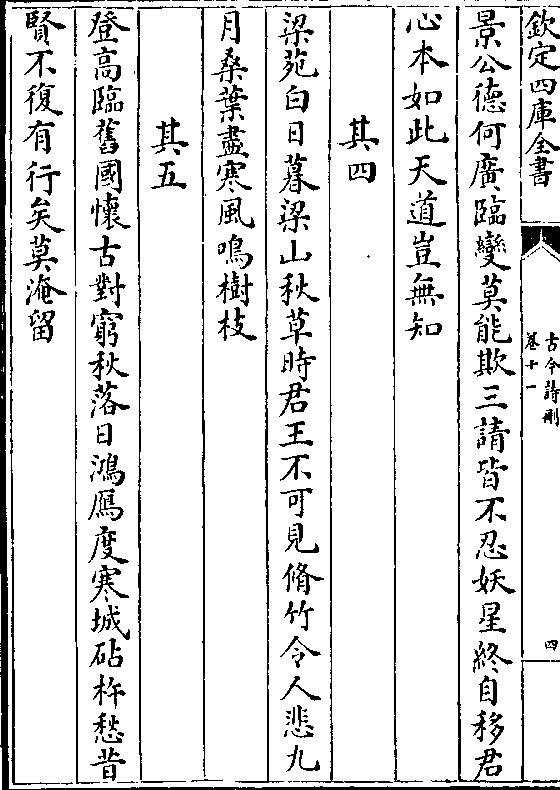 欽定四庫全書
古今詩刪
卷十一
四
景公德何廣臨變莫能欺三請皆不忍妖星終自移君
心本如此天道豈無知
其四
梁苑白日暮梁山秋草時君王不可見脩竹令人悲九
月桑葉盡寒風鳴樹枝
其五
登高臨舊國懷古對窮秋落日鴻鴈度寒城砧杵愁昔
賢不復有行矣莫淹留